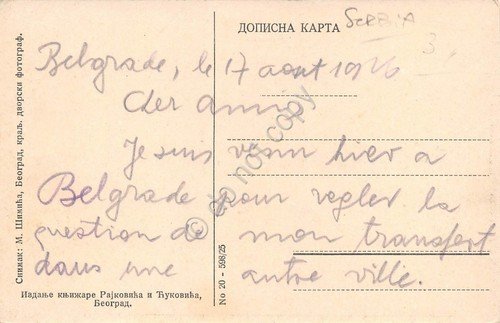 ДОПИСНА КАРТА
SERBIA
3
Belgrade, le 17 août 1926
Cher
Je suis venu hier a
Belgrade pour regler la
question de mon transfert
dans une autre ville.
Снимак: М. Шимића, Београд, краљ. дворски фотограф.
Издање књижаре Рајковића и Ћуковића,
Београд.
No 20 - 598/25
© do not copy